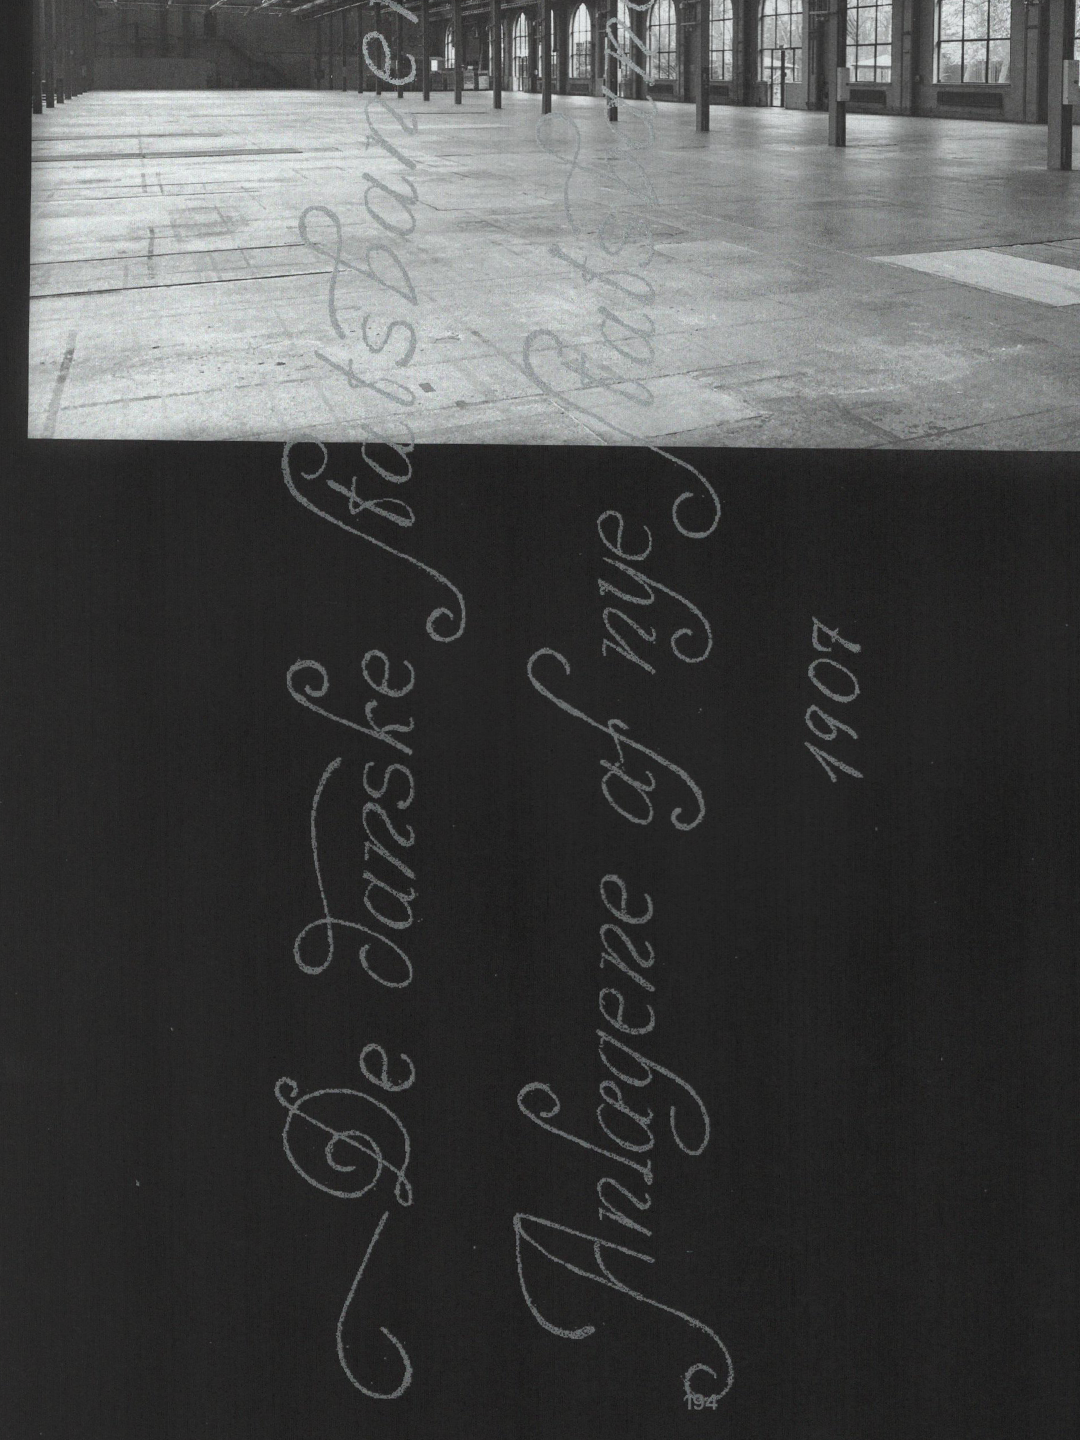 De danske Statsbaner
Anlægene af nye Statsbane
1907
194